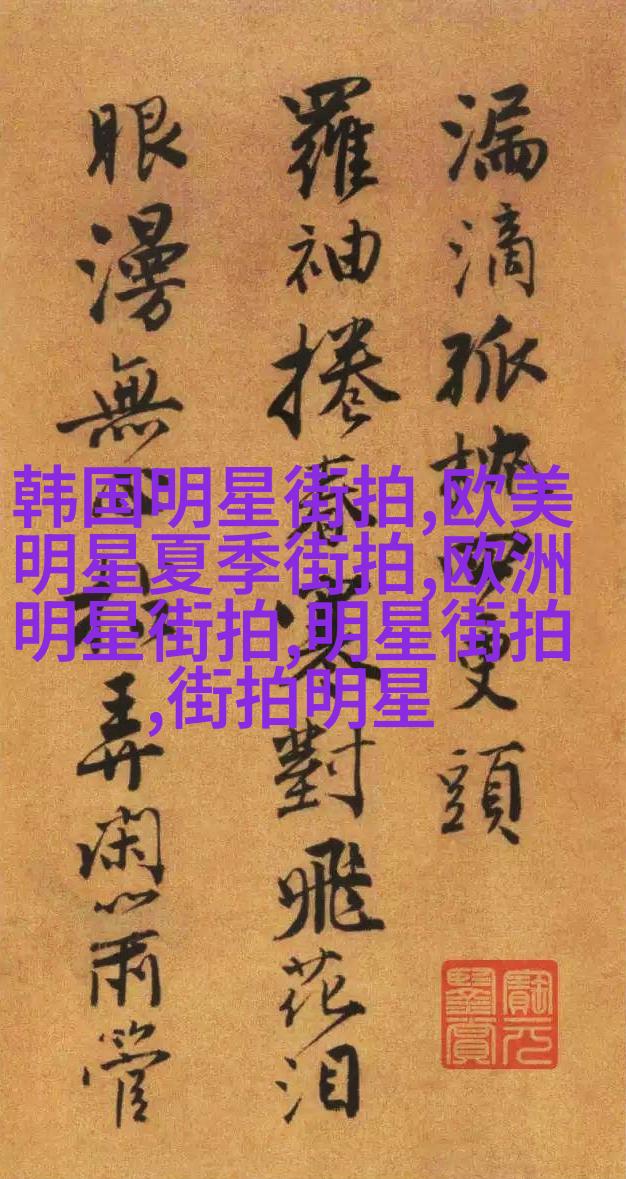 漏滴孤更頭
羅袖捲春寒對飛花泪
眼漫無弄閑心兩管
韩国明星街拍,欧美
明星夏季街拍,欧洲
明星街拍,明星街拍
,街拍明星
寶元
鑒賞